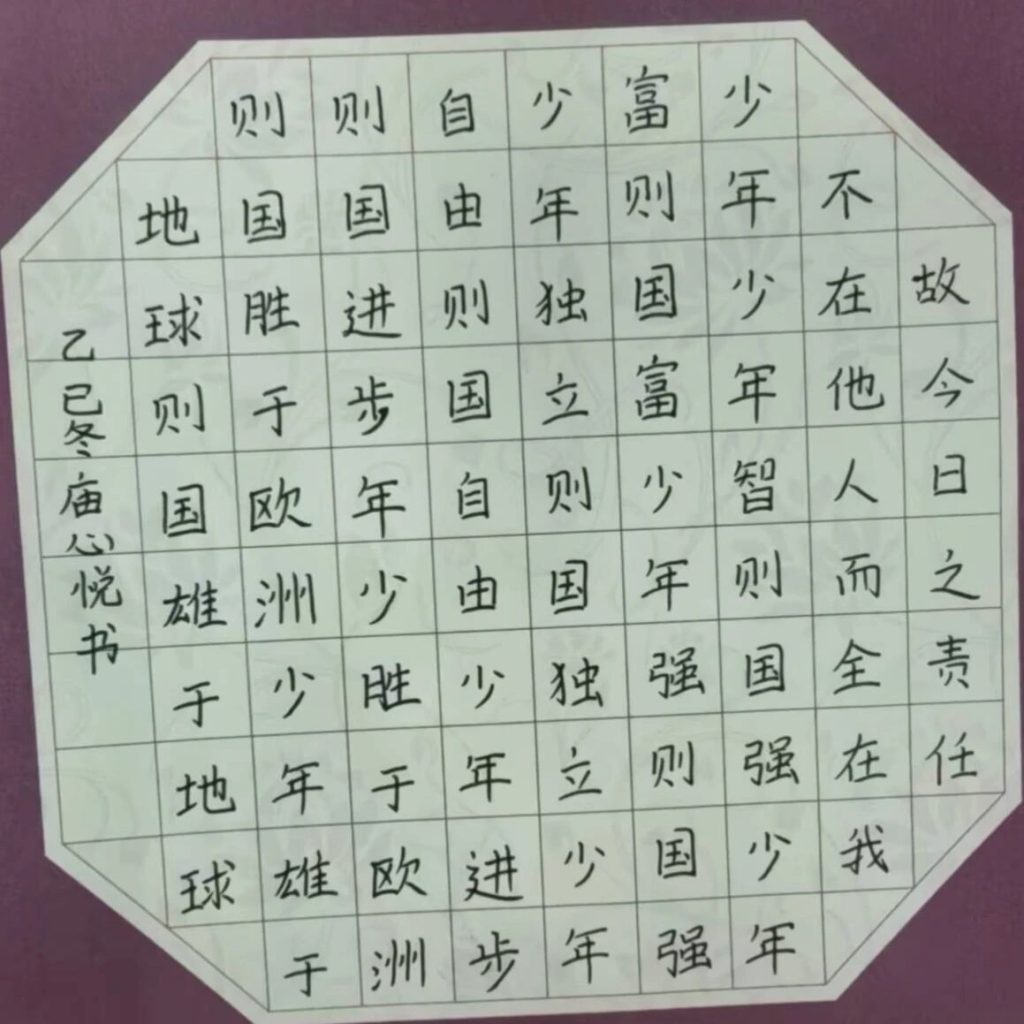 故今日之责任
不在他人而全在我
少年少年智则国强少年
富则国富少年强则国强
少年独立则国独立少年
自由则国自由少年进步
则国进步年少胜于欧洲
则国胜于欧洲少年雄于
地球则国雄于地球
乙已冬庙心悦书